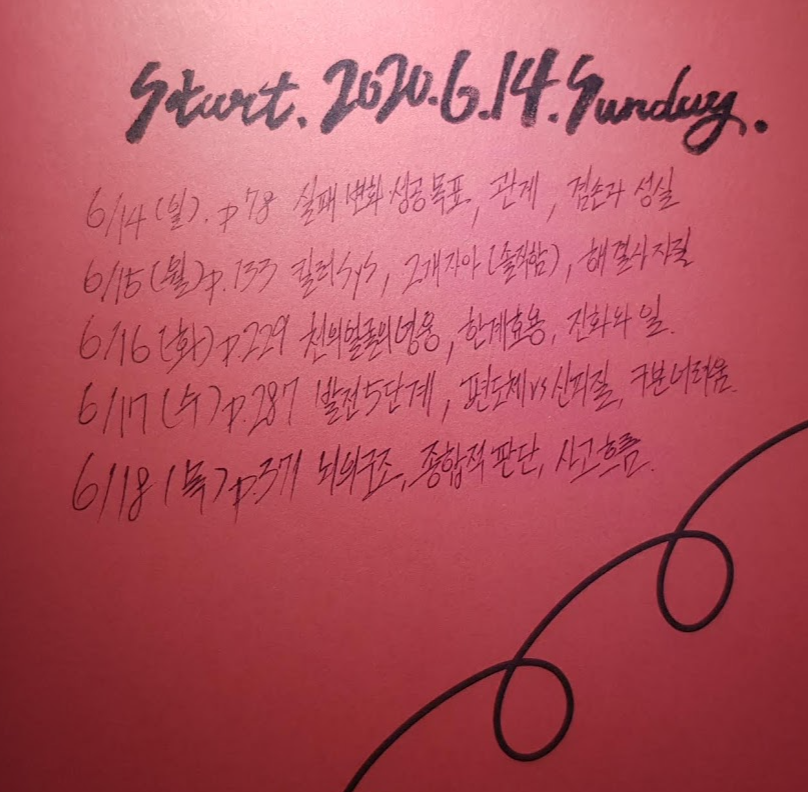 Start. 2020.6.14. Sunday.
6/14 (일). p78 실패 변화 성공 목표, 관계, 겸손과 성실
6/15 (월) p.133 킬러 sys, 2개 자아 (솔직함), 해결사 자질
6/16 (화) p.229 천의 얼굴의 영웅, 한계효용, 진화와 일.
6/17 (수) p.287 발전 5단계, 편도체 vs 신피질, 구분 어려움.
6/18 (목) p.371 뇌의 구조, 종합적 판단, 사고 흐름.